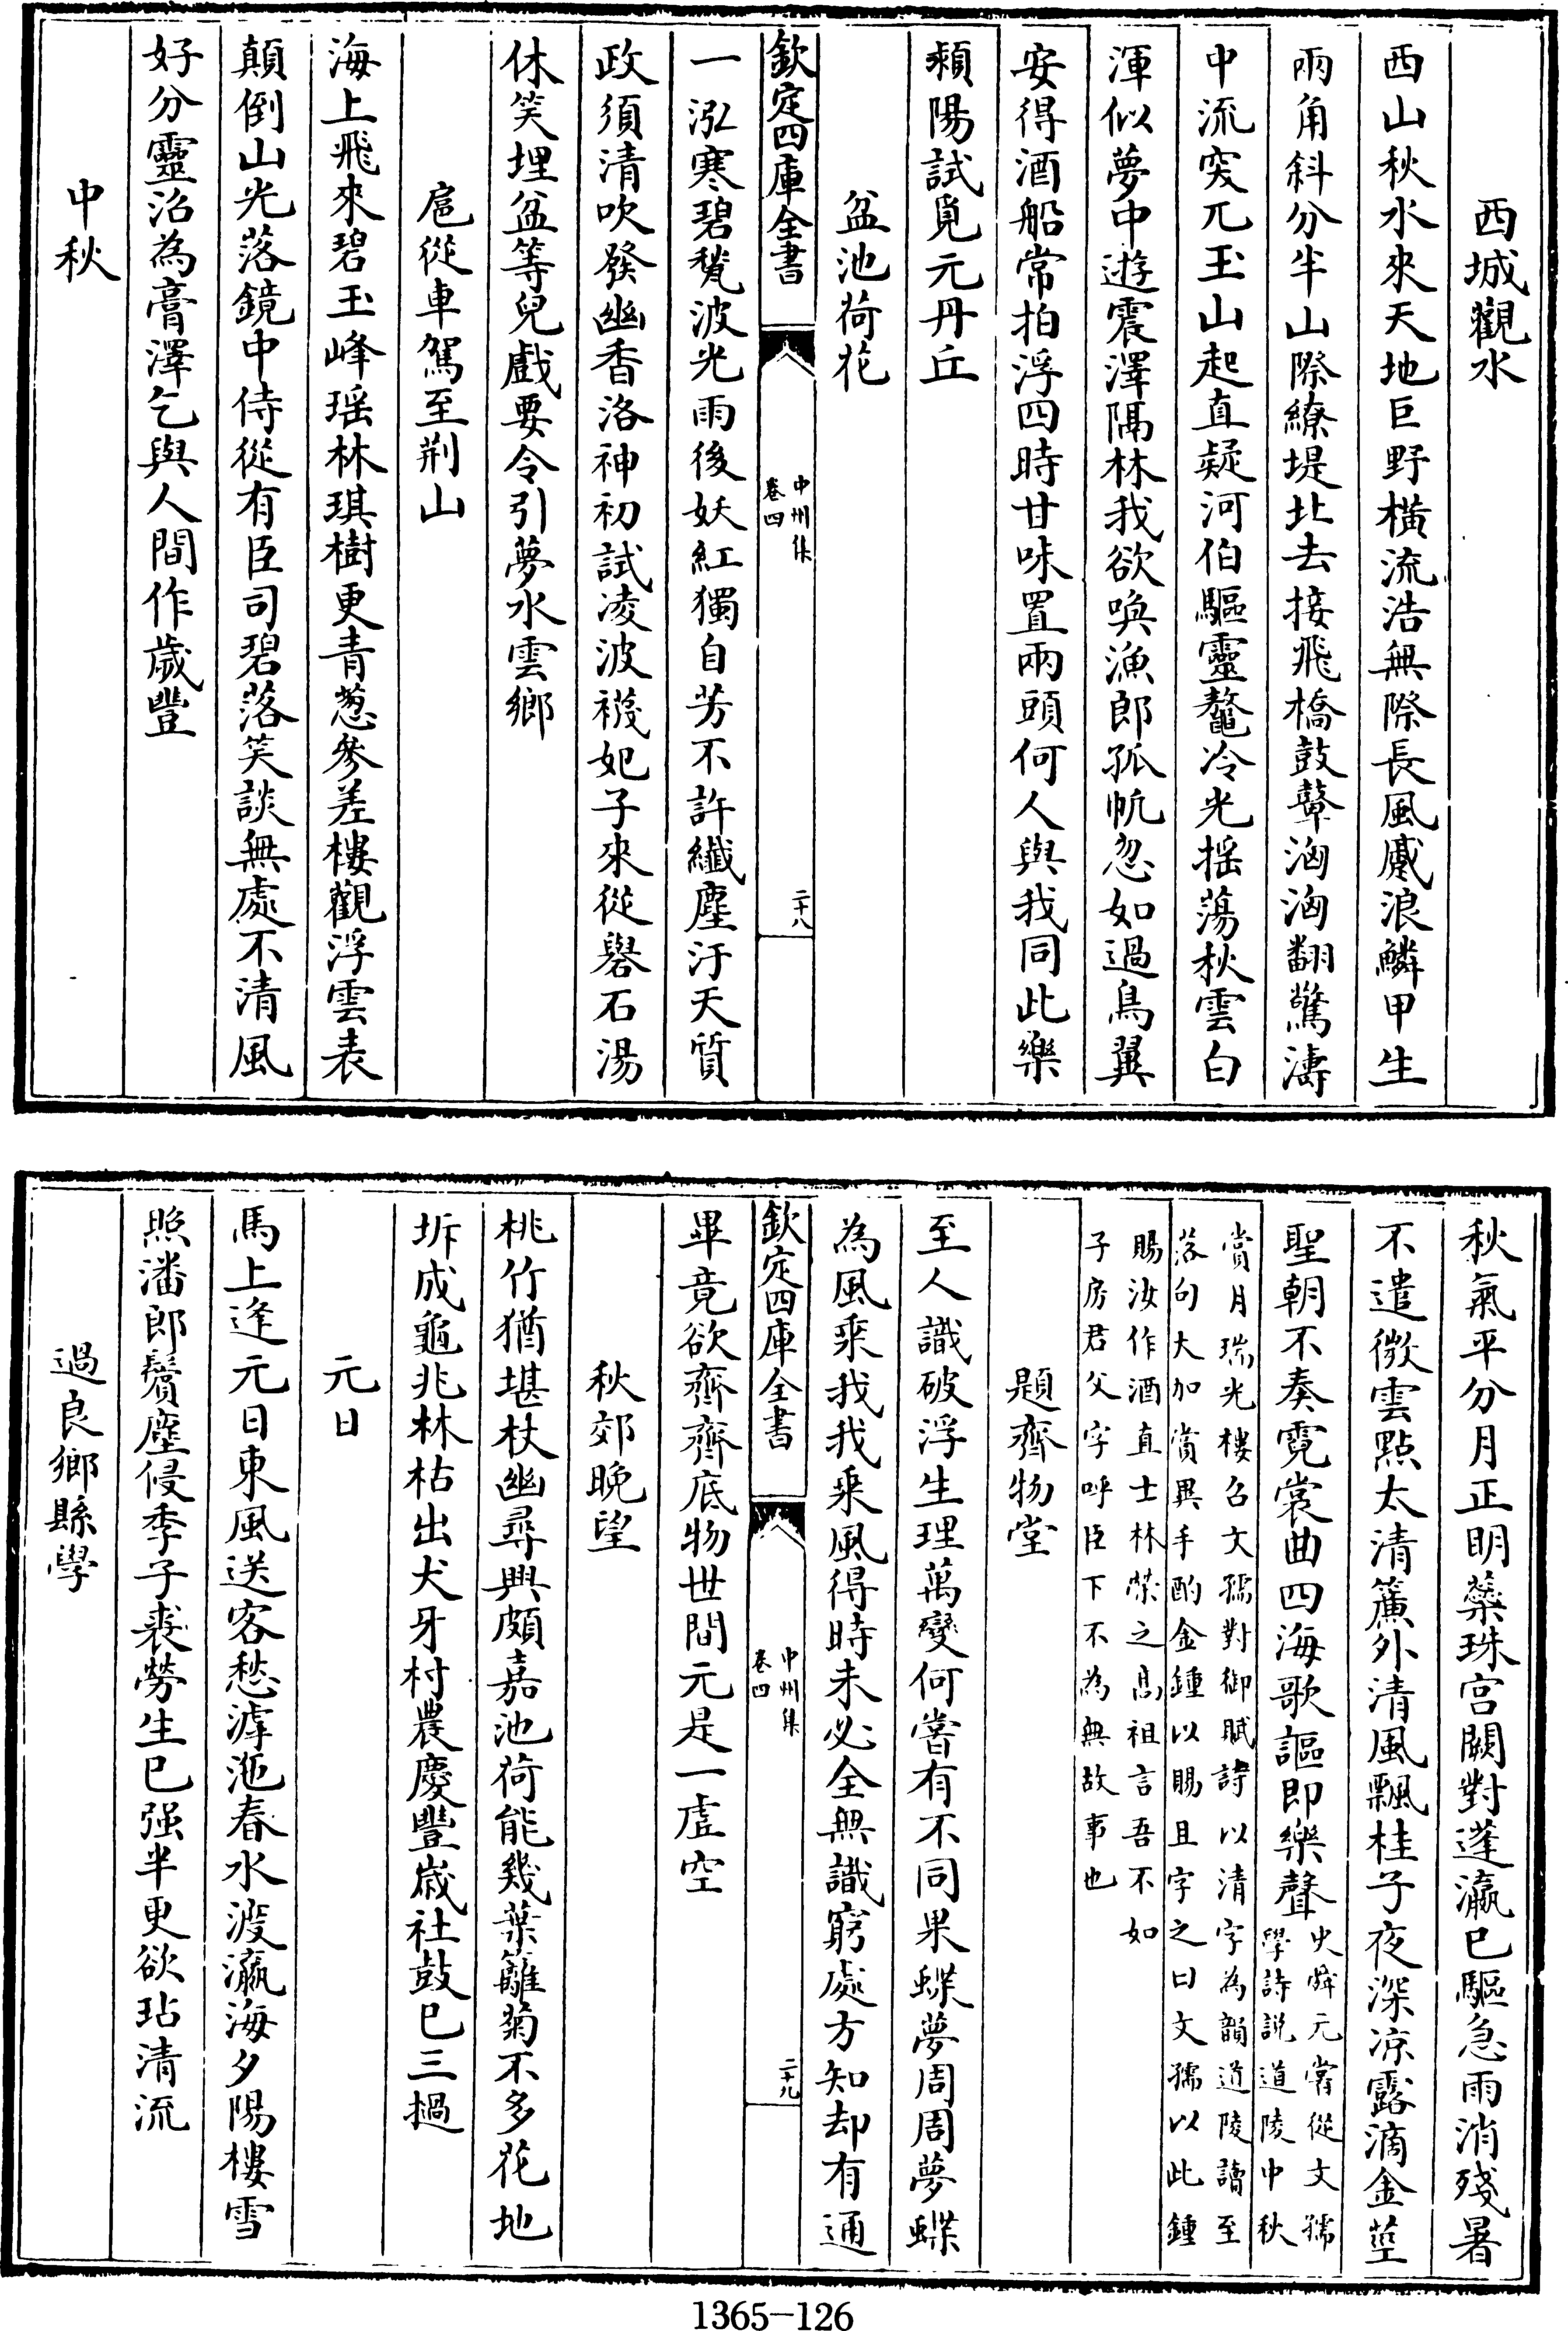 西城觀水
西山秋水來天地巨野橫流浩無際長風蹙浪鱗甲生
兩角斜分半山際繚堤北去接飛橋鼓鼙洶洶翻驚濤
中流突兀玉山起直疑河伯驅靈鼇冷光揺蕩秋雲白
渾似夢中遊震澤隔林我欲喚漁郎孤帆忽如過鳥翼
安得酒船常拍浮四時甘味置兩頭何人與我同此樂
潁陽試覓元丹丘
盆池荷花
欽定四庫全書
中州集
卷四
二十八
一泓寒碧甃波光雨後妖紅獨自芳不許纎塵汙天質
政須清吹發幽香洛神初試凌波襪妃子來從礜石湯
休笑埋盆等兒戲要令引夢水雲鄉
扈從車駕至荆山
海上飛來碧玉峰瑶林琪樹更青葱參差樓觀浮雲表
顛倒山光落鏡中侍從有臣司碧落笑談無處不清風
好分靈沼為膏澤乞與人間作歲豐
中秋
秋氣平分月正明蘂珠宫闕對蓬瀛已驅急雨消殘暑
不遣微雲點太清簾外清風飄桂子夜深凉露滴金莖
聖朝不奏霓裳曲四海歌謳即樂聲
史舜元嘗從文孺
學詩説道陵中秋
賞月瑞光樓召文孺對御賦詩以清字為韻道陵讀至
落句大加賞異手酌金鍾以賜且字之曰文孺以此鍾
賜汝作酒直士林榮之髙祖言吾不如
子房君父字呼臣下不為無故事也
題齊物堂
至人識破浮生理萬變何嘗有不同果蝶夢周周夢蝶
為風乘我我乘風得時未必全無識窮處方知却有通
欽定四庫全書
中州集
卷四
二十九
畢竟欲齊齊底物世間元是一虚空
秋郊晩望
桃竹猶堪杖幽尋興頗嘉池荷能幾葉籬菊不多花地
坼成龜兆林枯出犬牙村農慶豐歲社鼓已三撾
元日
馬上逢元日東風送客愁滹沲春水渡瀛海夕陽樓雪
照潘郎鬢塵侵季子裘勞生已强半更欲玷清流
過良鄉縣學
1365-126